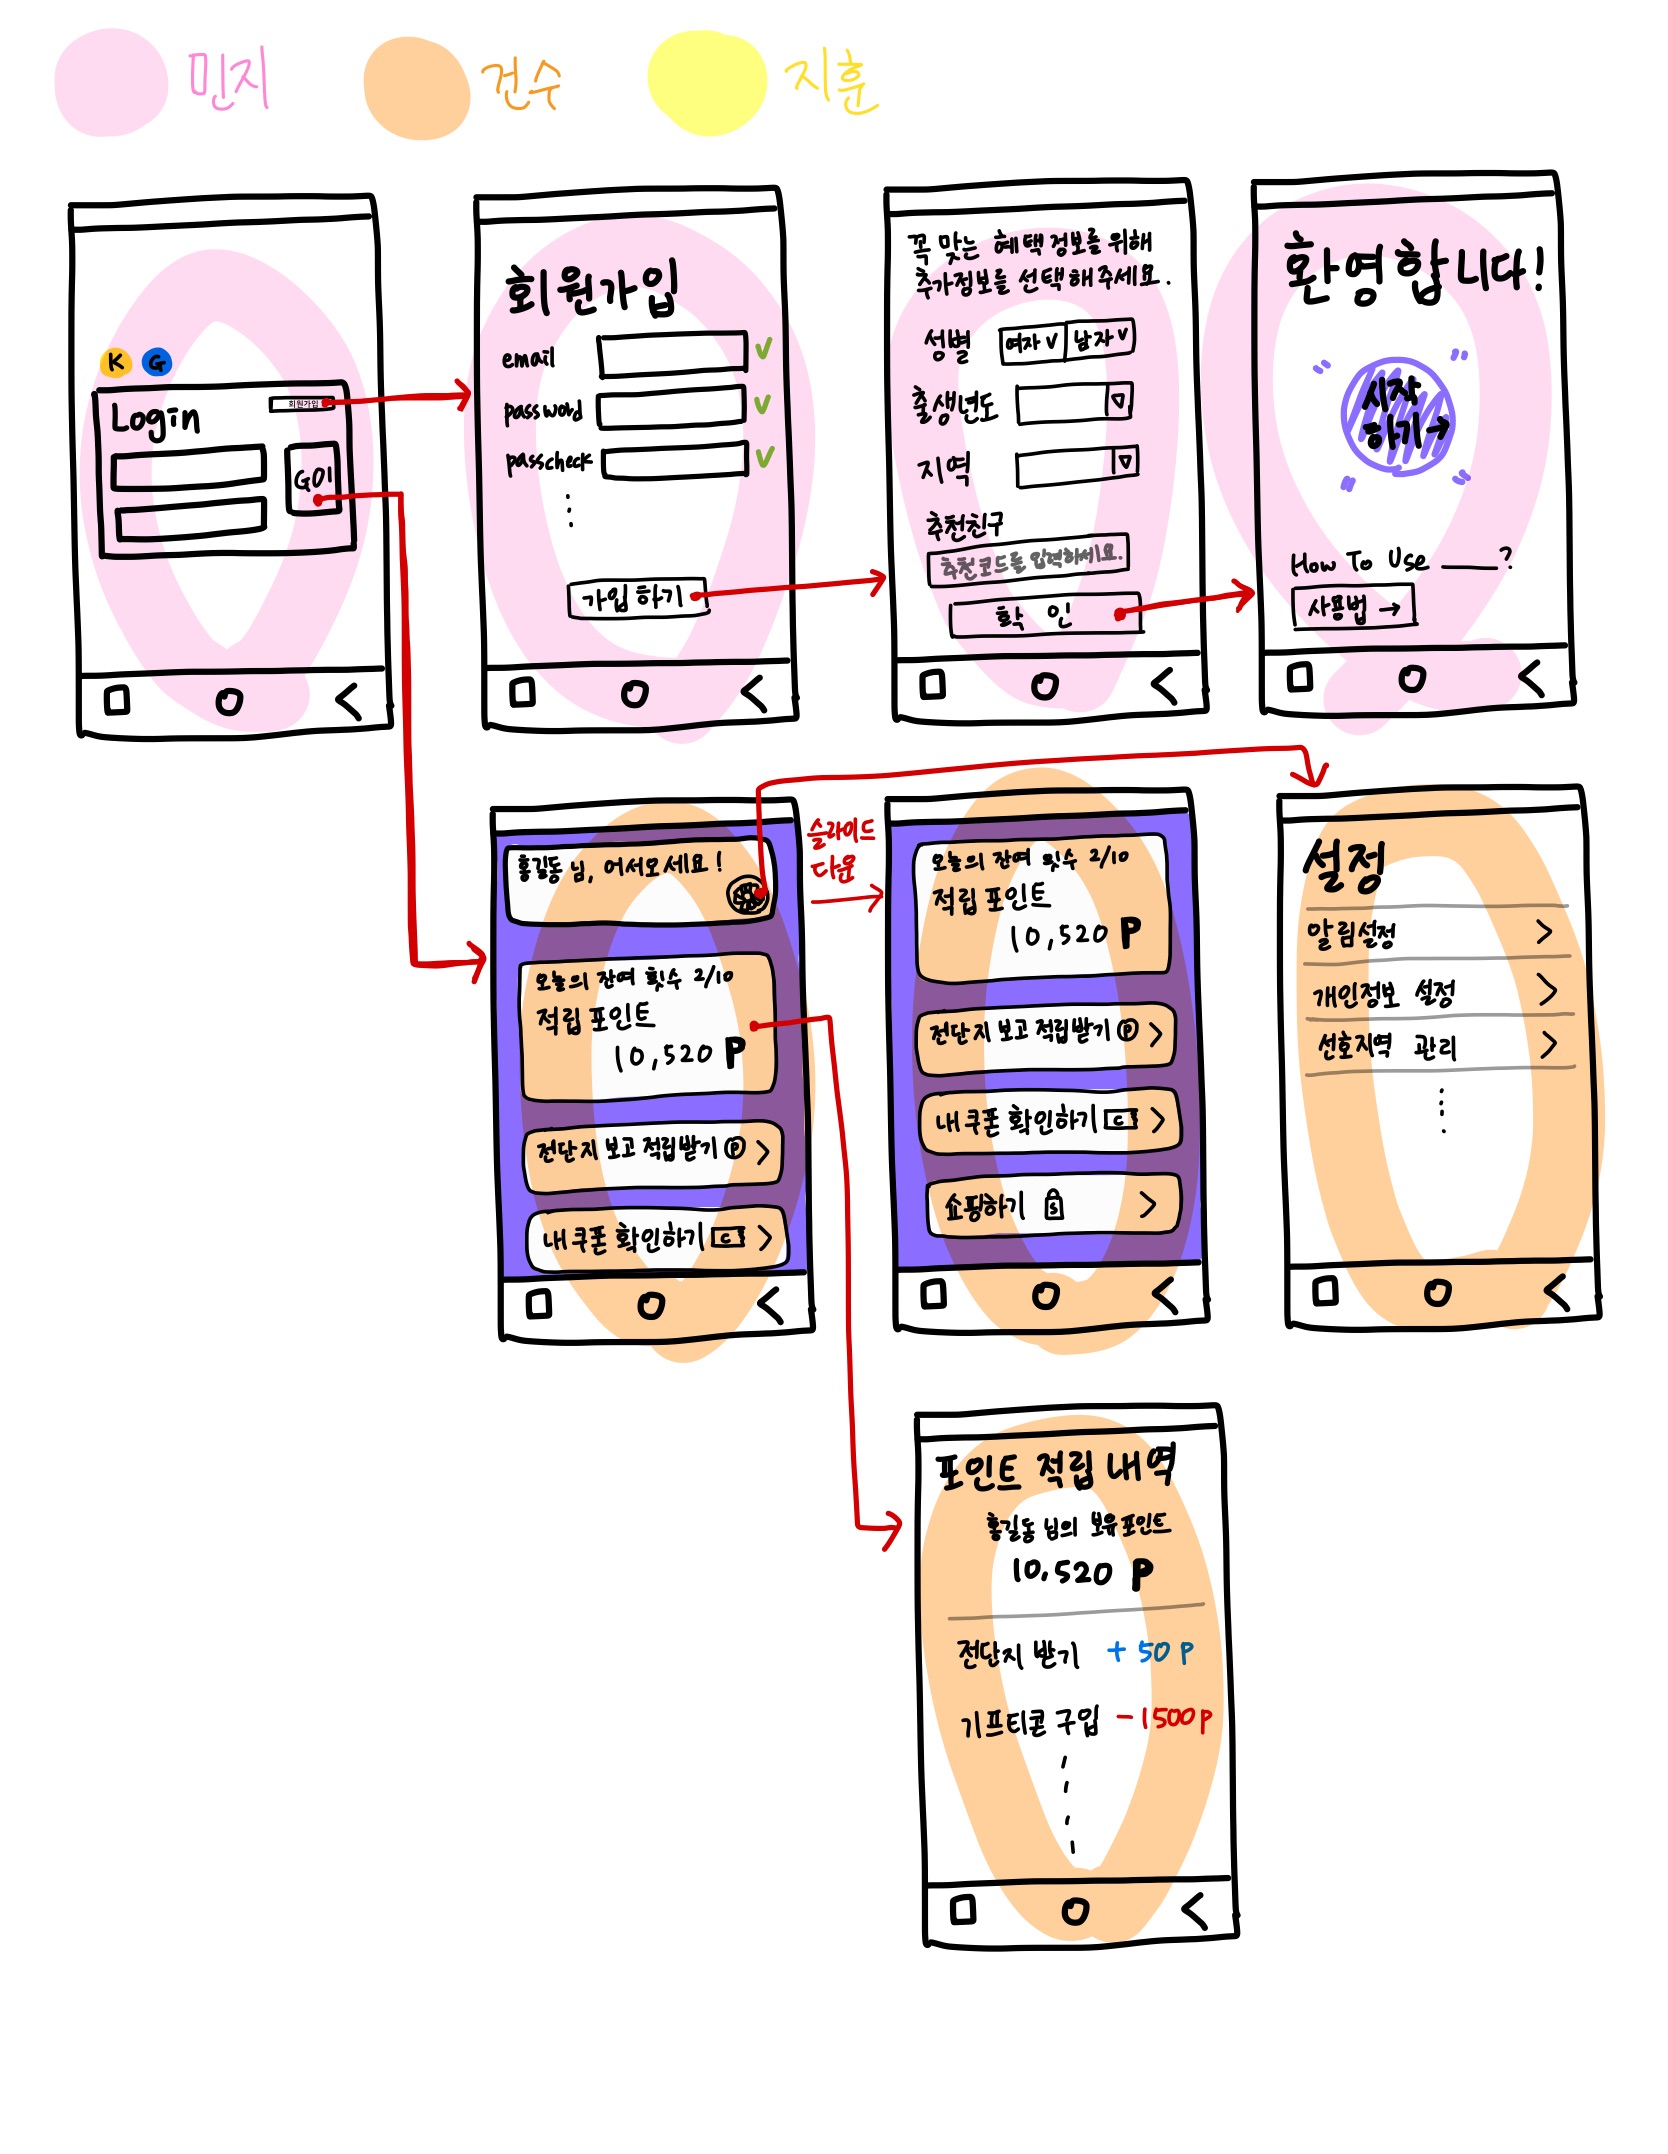 민지
건수
지훈
K G
Login
회원가입
GO!
회원가입
email
password
passcheck
가입하기
꼭 맞는 혜택정보를 위해
추가정보를 선택해주세요.
성별 여자 ∨ 남자 ∨
출생년도
지역
추천친구
추천코드를 입력하세요.
확 인
환영합니다!
시작
하기→
How To Use ____?
사용법 →
홍길동 님, 어서오세요!
오늘의 잔여 횟수 2/10
적립 포인트
10,520 P
전단지 보고 적립받기 P >
내 쿠폰 확인하기 C >
슬라이드
다운
오늘의 잔여 횟수 2/10
적립 포인트
10,520 P
전단지 보고 적립받기 P >
내 쿠폰 확인하기 C >
쇼핑하기 S >
설정
알림설정 >
개인정보 설정 >
선호지역 관리 >
포인트 적립 내역
홍길동 님의 보유포인트
10,520 P
전단지 받기 +50P
기프티콘 구입 -1500P